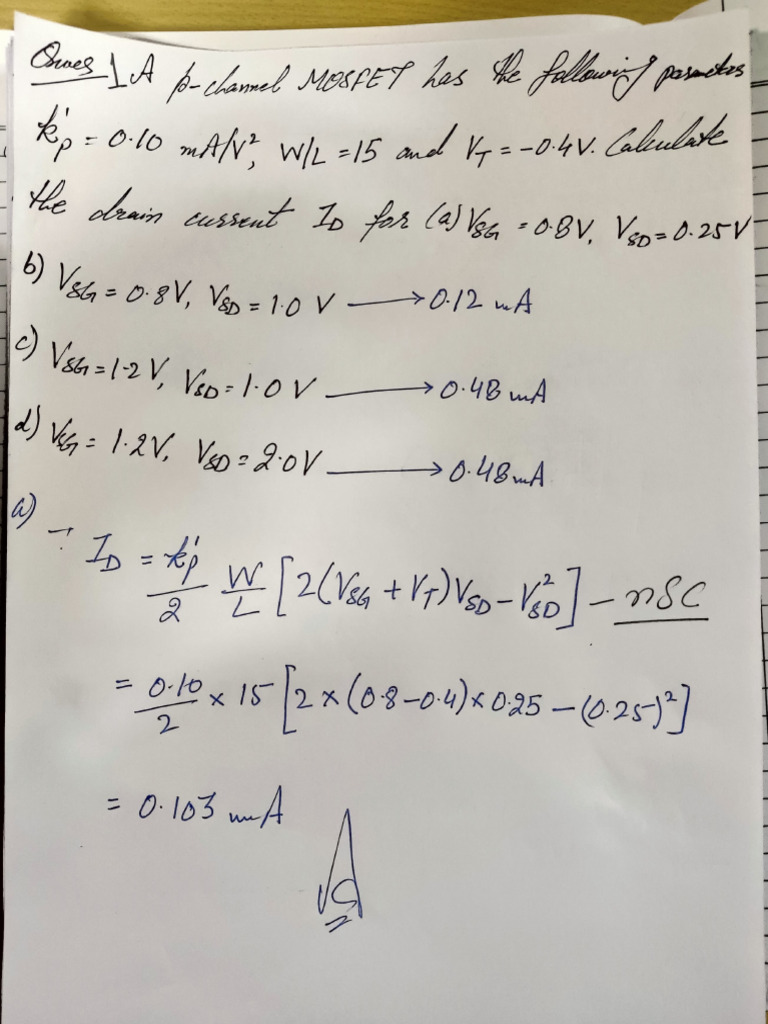 Ques 1 A p-channel MOSFET has the following parameters
k'p = 0.10 mA/V², W/L = 15 and VT = -0.4V. Calculate
the drain current ID for (a) VSG = 0.8V, VSD = 0.25V
b) VSG = 0.8V, VSD = 1.0 V → 0.12 mA
c) VSG = 1.2 V, VSD = 1.0 V → 0.48 mA
d) VSG = 1.2V, VSD = 2.0V → 0.48 mA
a)
ID = k'p/2 W/L [2(VSG + VT)VSD - V²SD] - nSC
= 0.10/2 × 15 [2 × (0.8-0.4) × 0.25 - (0.25)²]
= 0.103 mA